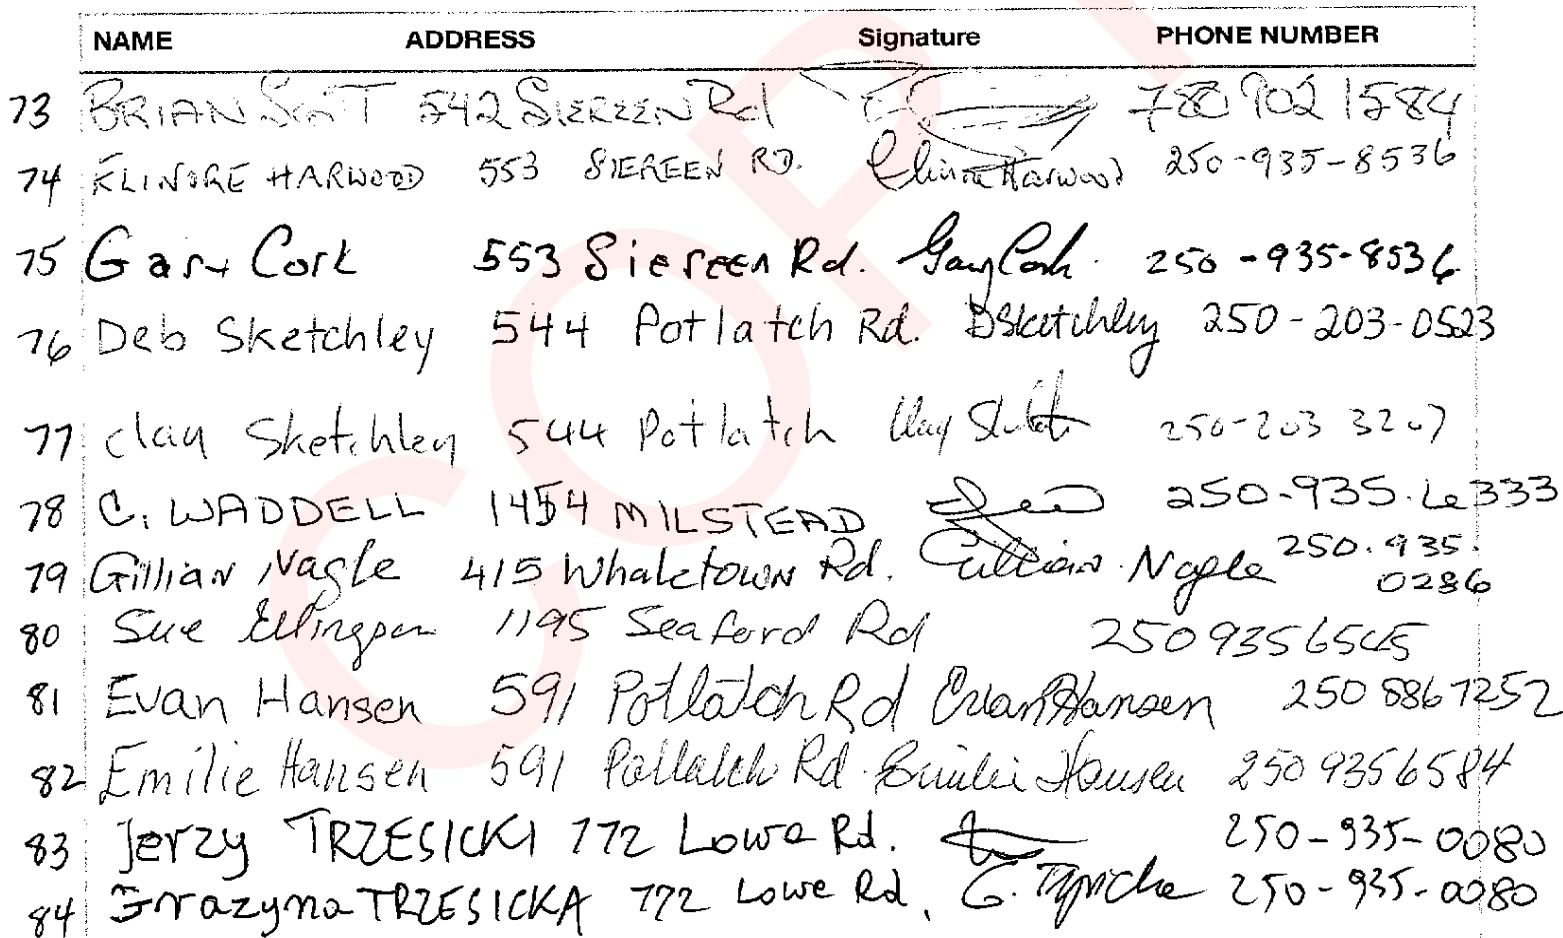 NAME ADDRESS Signature PHONE NUMBER
73 BRIAN SCOTT 542 SIEREEN Rd 780 902 1584
74 HARWOOD 553 SIEREEN RD. Harwood 250-935-8536
75 Gary Cork 553 Siereen Rd. Gary Cork 250-935-8536
76 Deb Sketchley 544 Potlatch Rd. DSketchley 250-203-0523
77 Clay Sketchley 544 Potlatch Clay 250-203 3207
78 C. WADDELL 1454 MILSTEAD 250-935.6333
79 Gillian Nagle 415 Whaletown Rd. Gillian Nagle 250.935.
0286
80 Sue Ellingsen 1195 Seaford Rd 250 935 6545
81 Evan Hansen 591 Potlatch Rd Evan Hansen 250 886 7252
82 Emilie Hansen 591 Potlatch Rd Emilie Hansen 250 935 6584
83 Jerzy TRZESICKI 772 Lowe Rd. 250-935-0080
84 Grazyna TRZESICKA 772 Lowe Rd. G. 250-935-0080
COPY